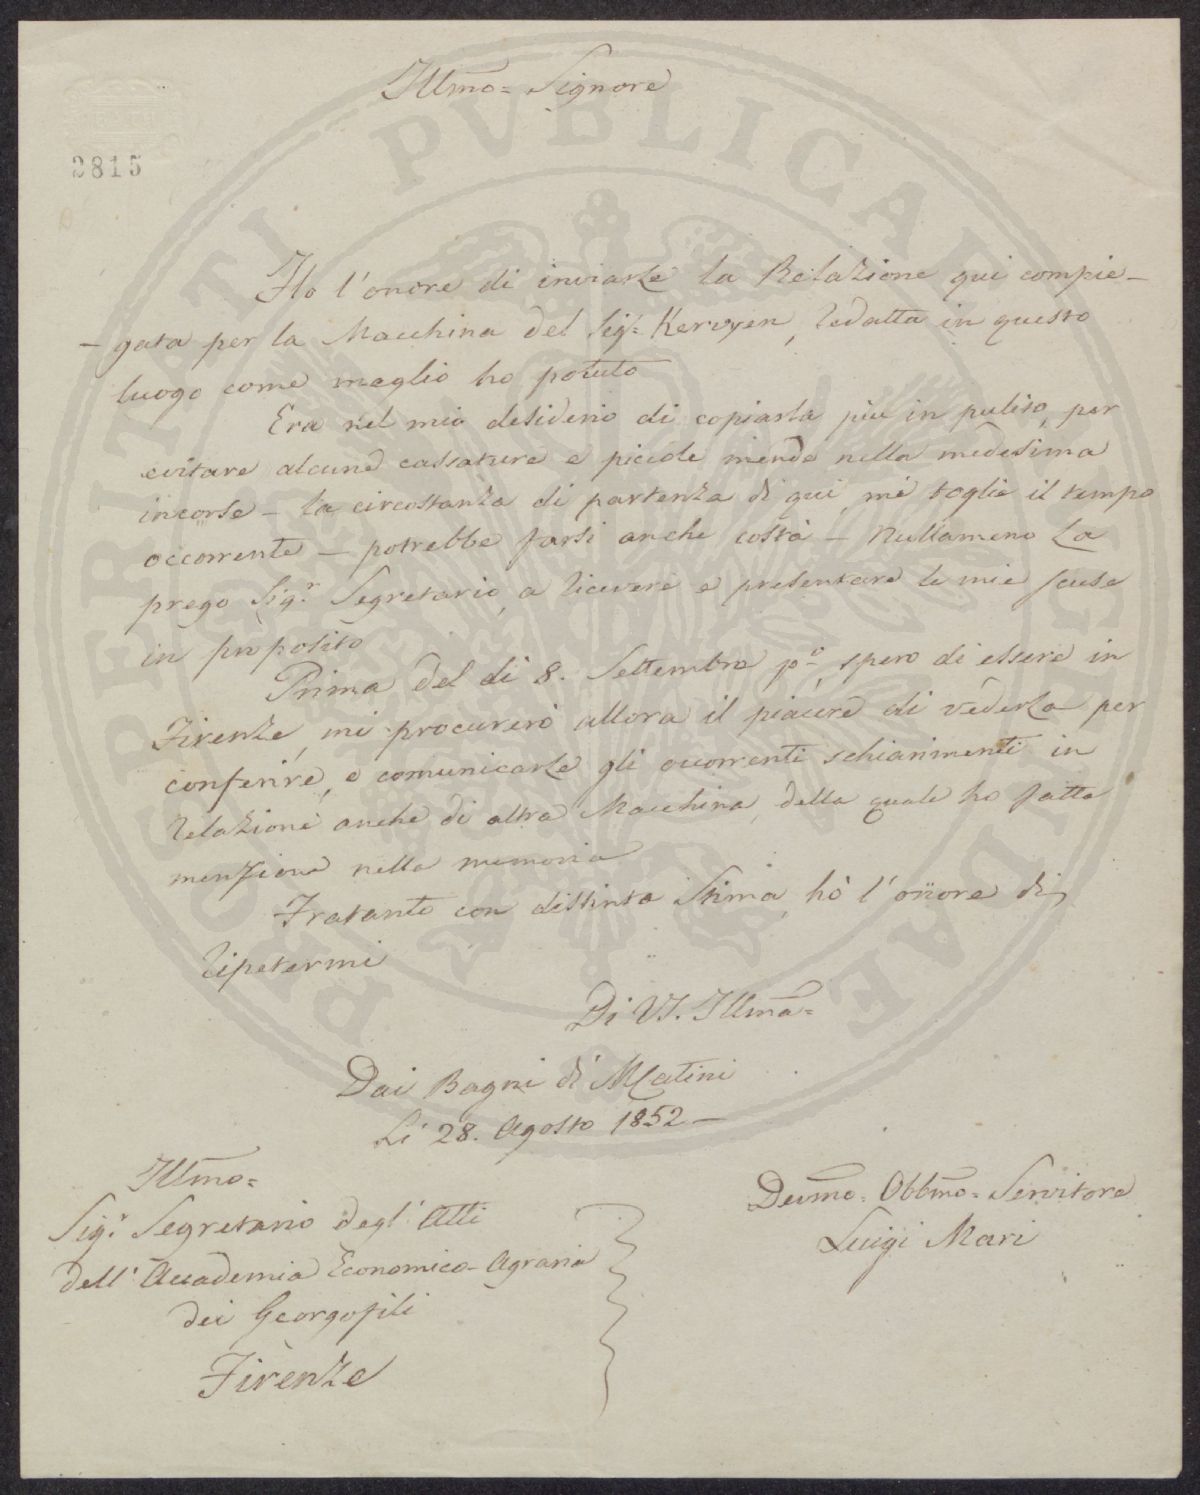 Illmo= Signore
2815
Ho l'onore di inviarle la Relazione qui compie-
- gata per la Macchina del Sigr. Kerwyen, redatta in questo
luogo come meglio ho potuto
Era nel mio desiderio di copiarla più in pulito, per
evitare alcune cassature e piccole mende nella medesima
incorse - la circostanza di partenza di qui, mi toglie il tempo
occorrente - potrebbe farsi anche costà - Nullameno La
prego Sigr. Segretario, a ricevere e presentare le mie scuse
in proposito
Prima del dì 8. Settembre po., spero di essere in
Firenze, mi procurerò allora il piacere di vederla per
conferire, e comunicarle gli occorrenti schiarimenti in
relazione anche di altra Macchina, della quale ho fatto
menzione nella memoria
Fratanto con distinta Stima, hò l'onore di
ripetermi
Di VS. Illma=
Dai Bagni di MCatini
Li 28. Agosto 1852 -
Illmo=
Sigr. Segretario degl'Atti
dell'Accademia Economico-Agraria
dei Georgofili
Firenze
Devmo. Obbmo= Servitore
Luigi Mari
PROSPERITATI PVBLICAE AVGENDAE